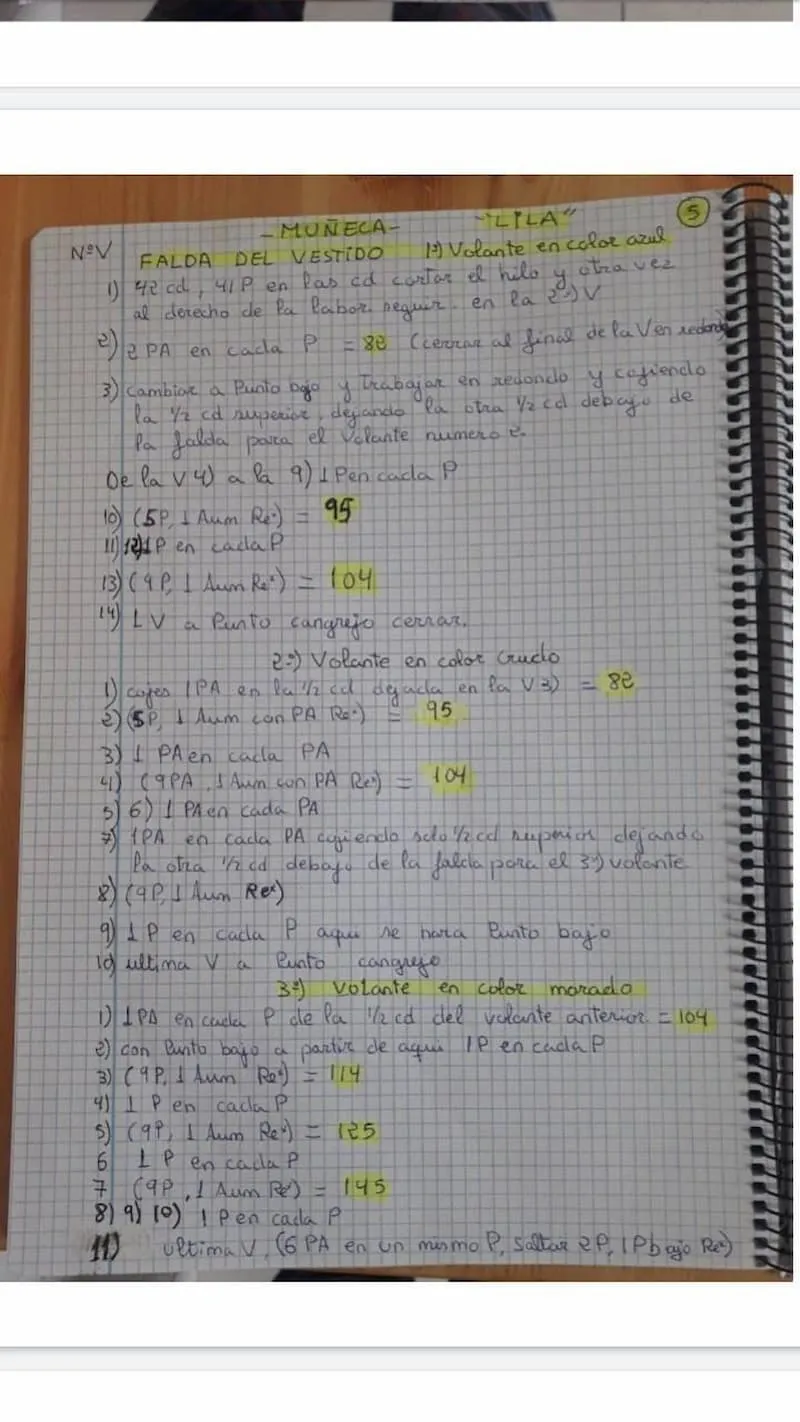 -MUÑECA- -"LILA" 5
NºV FALDA DEL VESTIDO 1º) Volante en color azul
1) 42 cd, 41 P en las cd cortar el hilo y otra vez
al derecho de la labor seguir en la 2ª) V
2) 2 PA en cada P = 82 (cerrar al final de la V en redondo
3) cambiar a Punto bajo y Trabajar en redondo y cojiendo
la 1/2 cd superior, dejando la otra 1/2 cd debajo de
la falda para el Volante numero 2.
De la V 4) a la 9) 1 P en cada P
10) (5P, 1 Aum Reº) = 95
11) 12) 1P en cada P
13) (9P, 1 Aum Reº) = 104
14) 1 V a Punto cangrejo cerrar.
2º) Volante en color crudo
1) cojes 1PA en la 1/2 cd dejada en la V 3) = 82
2) (5P, 1 Aum con PA Reº) = 95
3) 1 PA en cada PA
4) (9PA, 1 Aum con PA Reº) = 104
5) 6) 1 PA en cada PA
7) 1PA en cada PA cojiendo solo 1/2 cd superior dejando
la otra 1/2 cd debajo de la falda para el 3º) volante
8) (9P, 1 Aum Reº)
9) 1 P en cada P aqui se hara Punto bajo
10) ultima V a Punto cangrejo
3º) Volante en color morado
1) 1PA en cada P de la 1/2 cd del volante anterior = 104
2) con Punto bajo a partir de aqui 1P en cada P
3) (9P, 1 Aum Reº) = 114
4) 1 P en cada P
5) (9P, 1 Aum Reº) = 125
6 1 P en cada P
7 (9P, 1 Aum Reº) = 145
8) 9) 10) 1 P en cada P
11) ultima V, (6 PA en un mismo P, Saltar 2P, 1Pbajo Reº)